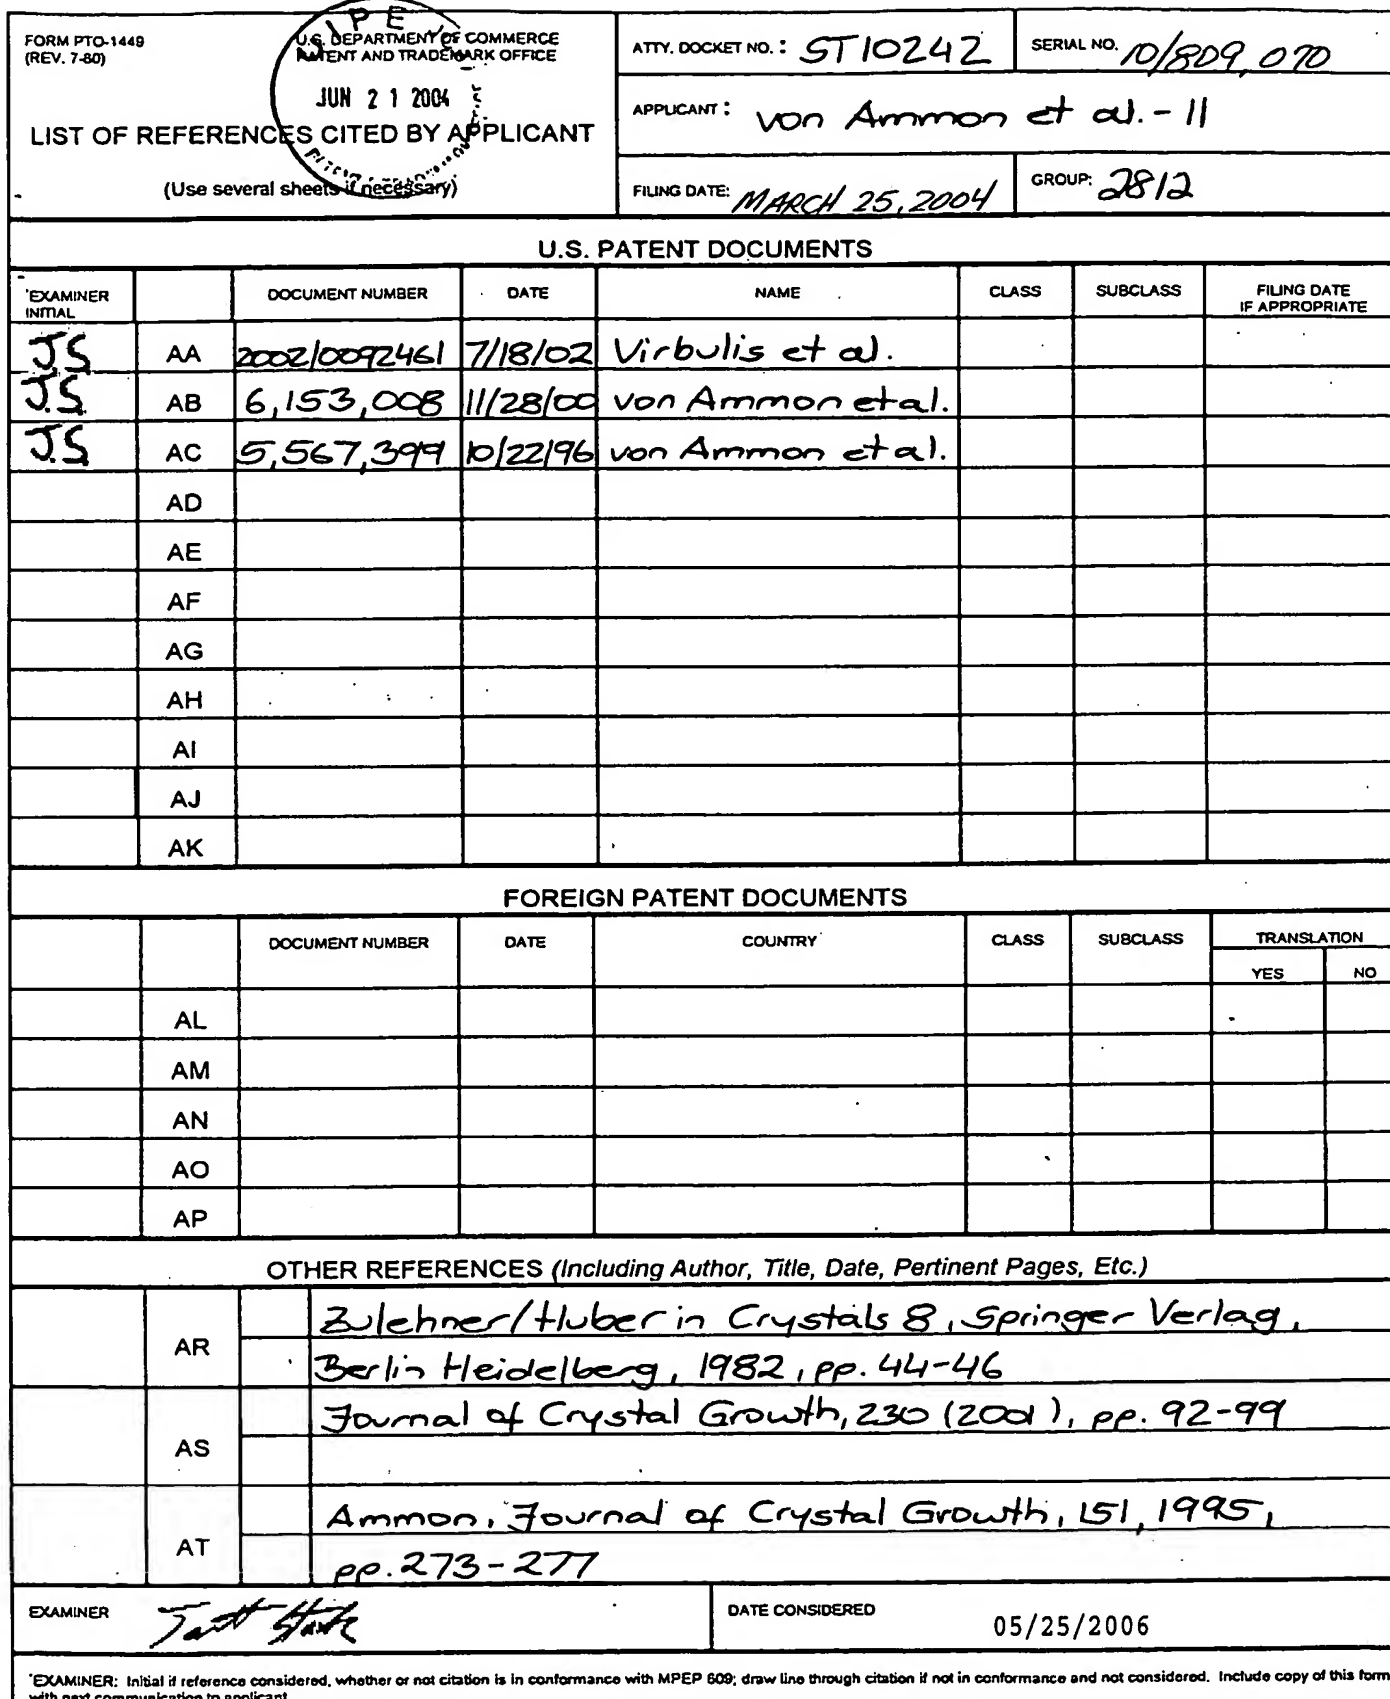 FORM PTO-1449
(REV. 7-80)
U.S. DEPARTMENT OF COMMERCE
PATENT AND TRADEMARK OFFICE
JUN 21 2004
LIST OF REFERENCES CITED BY APPLICANT
(Use several sheets if necessary)
ATTY. DOCKET NO.: ST10242
SERIAL NO. 10/809,070
APPLICANT: von Ammon et al. - 11
FILING DATE: MARCH 25, 2004
GROUP: 2812
U.S. PATENT DOCUMENTS
*EXAMINER INITIAL DOCUMENT NUMBER DATE NAME CLASS SUBCLASS FILING DATE IF APPROPRIATE
J.S AA 2002/0092461 7/18/02 Virbulis et al.
J.S. AB 6,153,008 11/28/00 von Ammon et al.
J.S AC 5,567,399 10/22/96 von Ammon et al.
AD
AE
AF
AG
AH
AI
AJ
AK
FOREIGN PATENT DOCUMENTS
DOCUMENT NUMBER DATE COUNTRY CLASS SUBCLASS TRANSLATION
YES NO
AL
AM
AN
AO
AP
OTHER REFERENCES (Including Author, Title, Date, Pertinent Pages, Etc.)
AR Zulehner/Huber in Crystals 8, Springer Verlag,
Berlin Heidelberg, 1982, pp. 44-46
AS Journal of Crystal Growth, 230 (2001), pp. 92-99
AT Ammon, Journal of Crystal Growth, 151, 1995,
pp. 273-277
EXAMINER
DATE CONSIDERED 05/25/2006
*EXAMINER: Initial if reference considered, whether or not citation is in conformance with MPEP 609; draw line through citation if not in conformance and not considered. Include copy of this form
with next communication to applicant